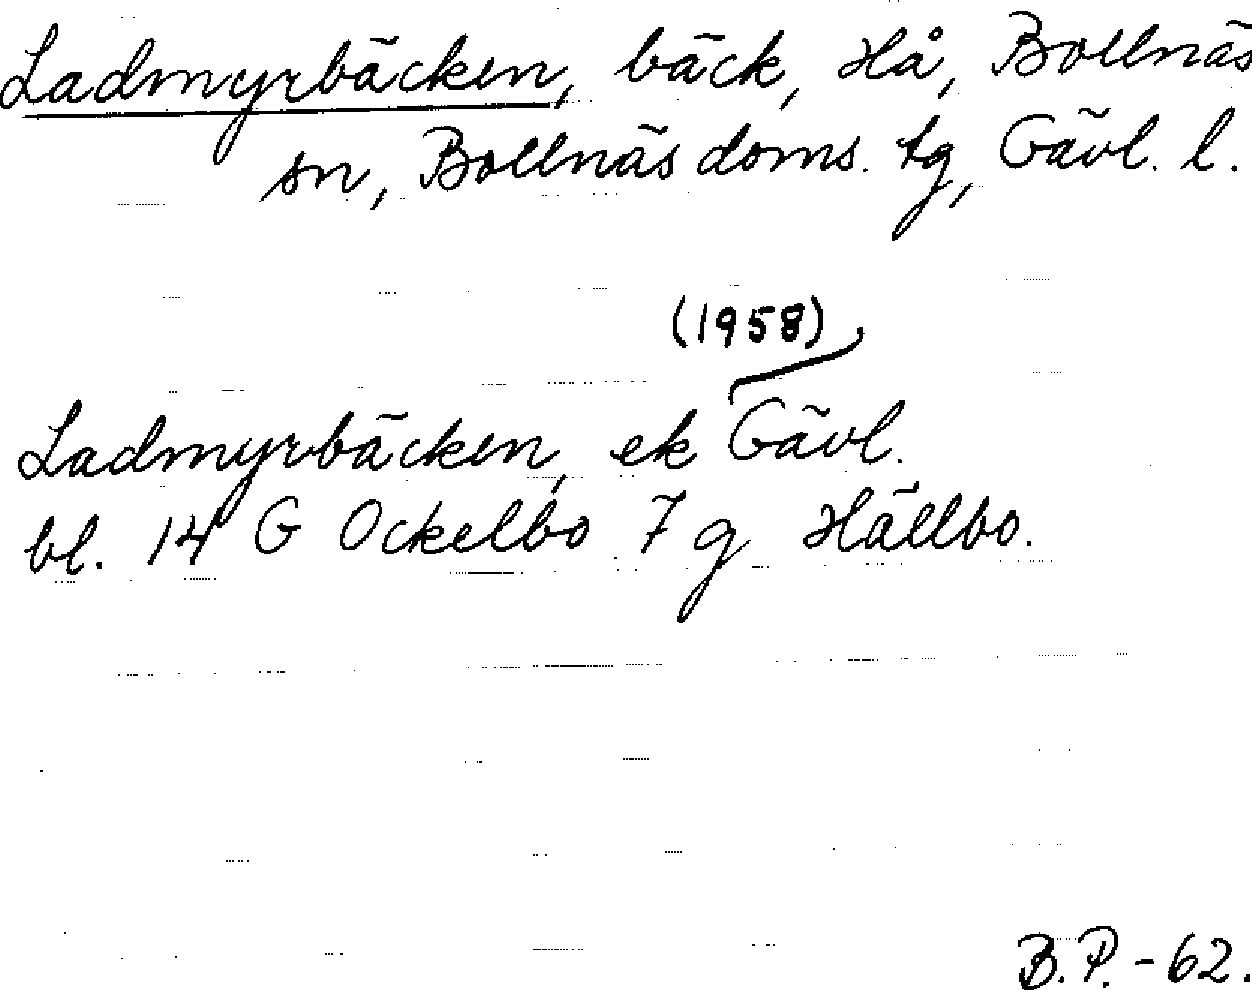 Ladmyrbäcken, bäck, Hå, Bollnäs
sn, Bollnäs doms. tg, Gävl. l.
(1958)
Ladmyrbäcken, ek Gävl.
bl. 14 G Ockelbo 7 g Hällbo.
B.P. - 62.